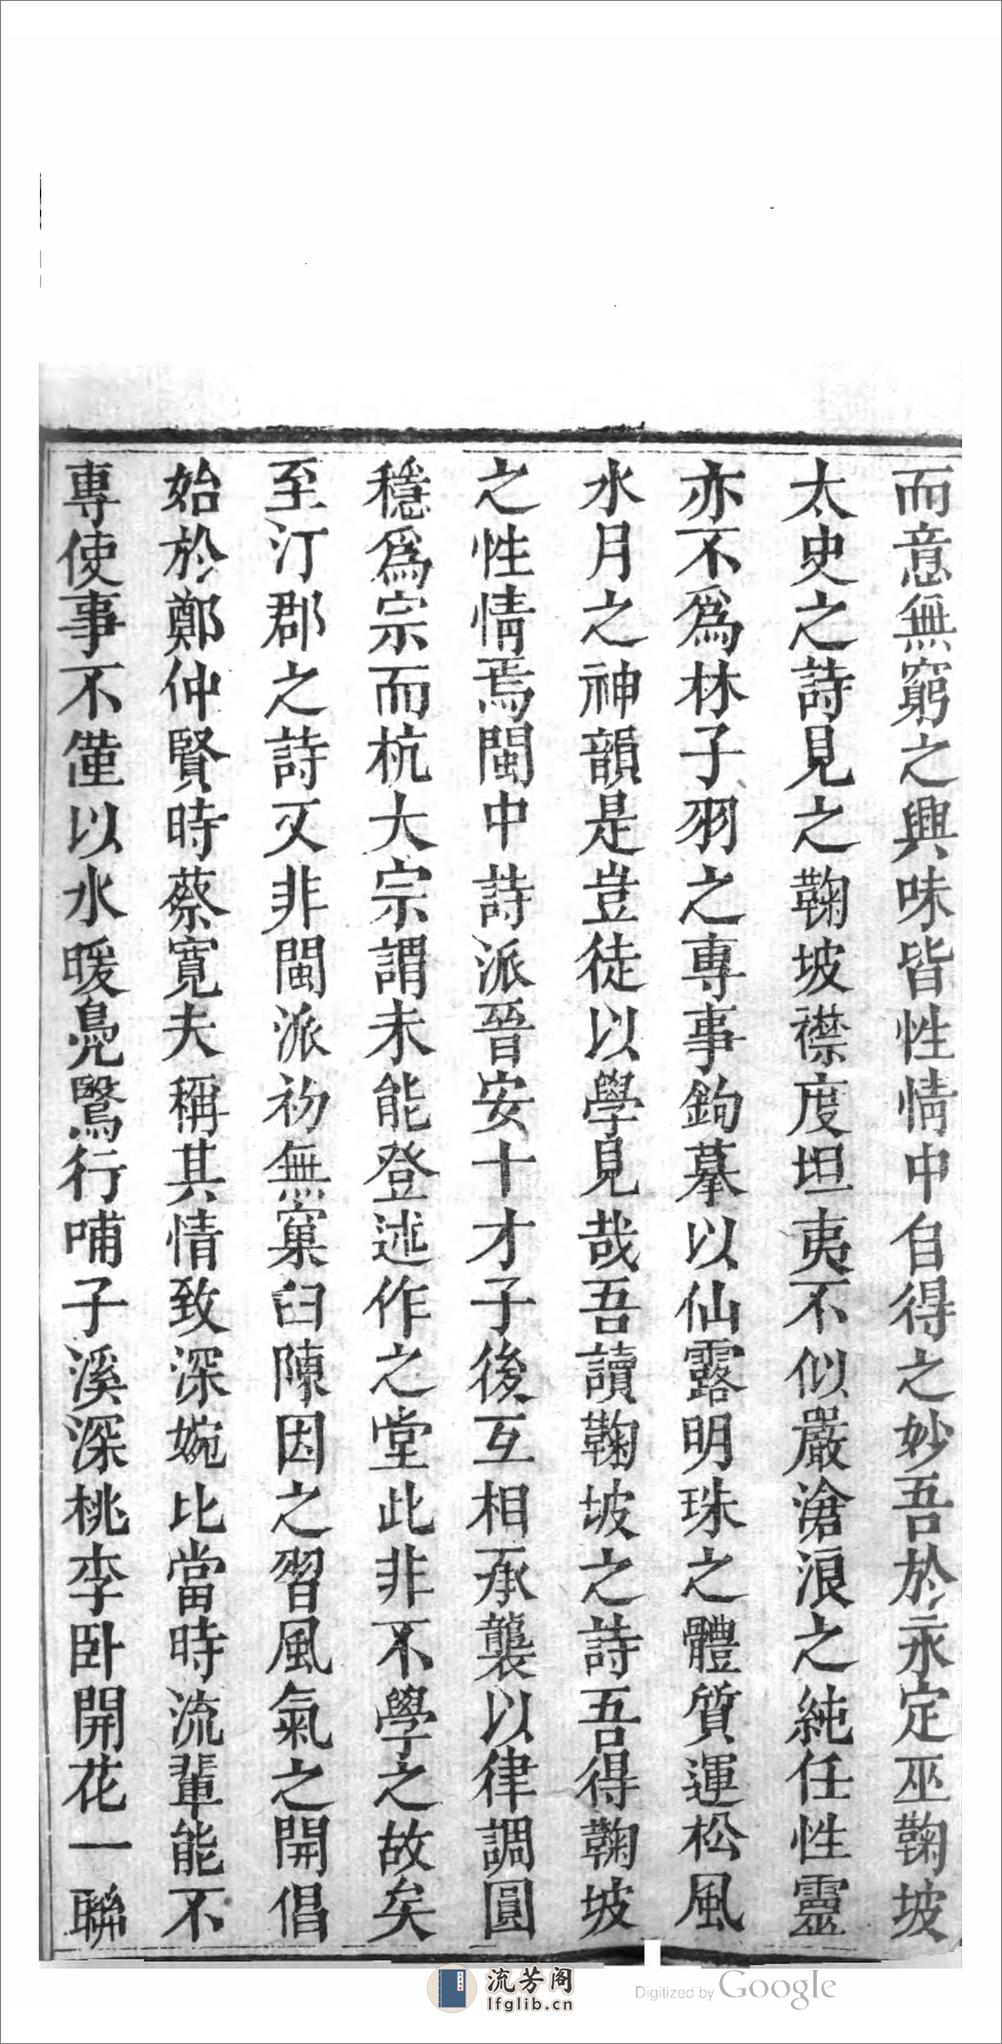 而意無窮之興味皆性情中自得之妙吾於永定巫鞠坡
太史之詩見之鞠坡襟度坦夷不似嚴滄浪之純任性靈
亦不爲林子羽之專事鉤摹以仙露明珠之體質運松風
水月之神韻是豈徒以學見哉吾讀鞠坡之詩吾得鞠坡
之性情焉閩中詩派晉安十才子後互相承襲以律調圓
穩爲宗而杭大宗謂未能登述作之堂此非不學之故矣
至汀郡之詩又非閩派初無窠臼陳因之習風氣之開倡
始於鄭仲賢時蔡寬夫稱其情致深婉比當時流輩能不
專使事不僅以水暖鳧鷖行哺子溪深桃李卧開花一聯
流芳阁
lfglib.cn
Digitized by Google